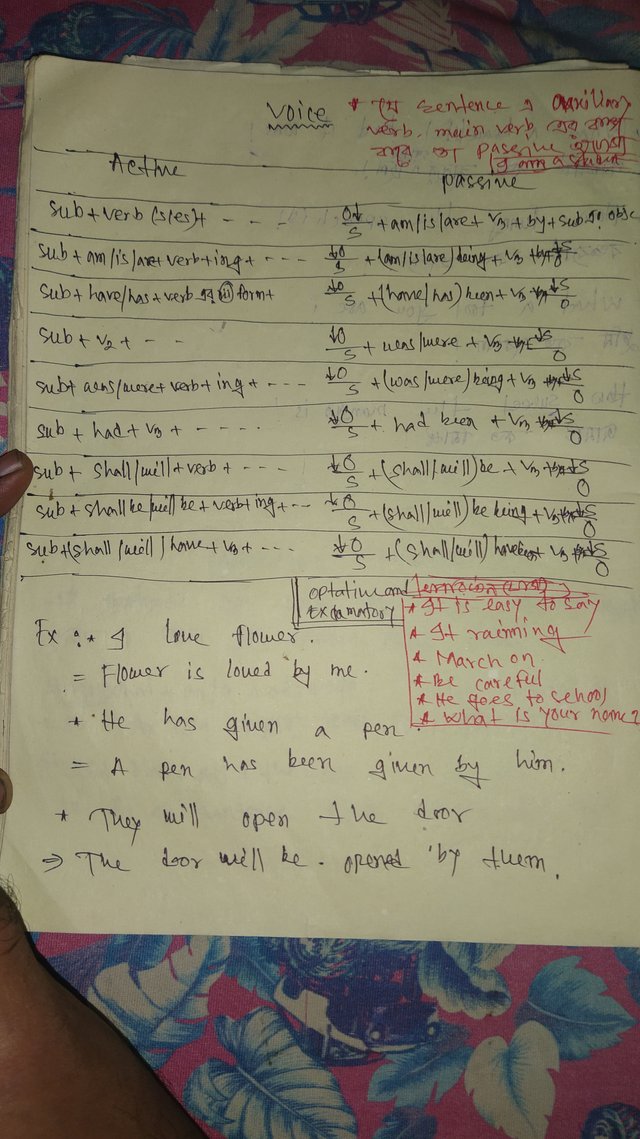 Voice * যে sentence এ auxiliary
verb. main verb এর কাজ
করে তা passive হয়না
I am a student
Active
passive
Sub + verb (s/es)+ - - - O↓/S + am/is/are + V3 + by + sub এর obj
Sub + am/is/are + verb + ing + - - - ↓O/S + (am/is/are) being + V3 + by + ↓S/O
Sub + have/has + verb এর (iii) form + ↓O/S + (have/has) been + V3 + by + ↓S/O
Sub + V2 + - - ↓O/S + was/were + V3 + by + ↓S/O
Sub + was/were + verb + ing + - - - ↓O/S + (was/were) being + V3 + by + ↓S/O
Sub + had + V3 + - - - - - ↓O/S + had been + V3 + by + ↓S/O
Sub + shall/will + verb + - - - ↓O/S + (shall/will) be + V3 + by + ↓S/O
Sub + shall be/will be + verb + ing + - - ↓O/S + (shall/will) be being + V3 + by + ↓S/O
Sub + (shall/will) have + V3 + - - - ↓O/S + (shall/will) have been + V3 + by + ↓S/O
optative and
Exclamatory
* It is easy to say
* It rainning
* March on
* Be careful
* He goes to school
* What is your name?
Ex : * I love flower.
= Flower is loved by me.
* He has given a pen.
= A pen has been given by him.
* They will open the door
⇒ The door will be . opened by them.